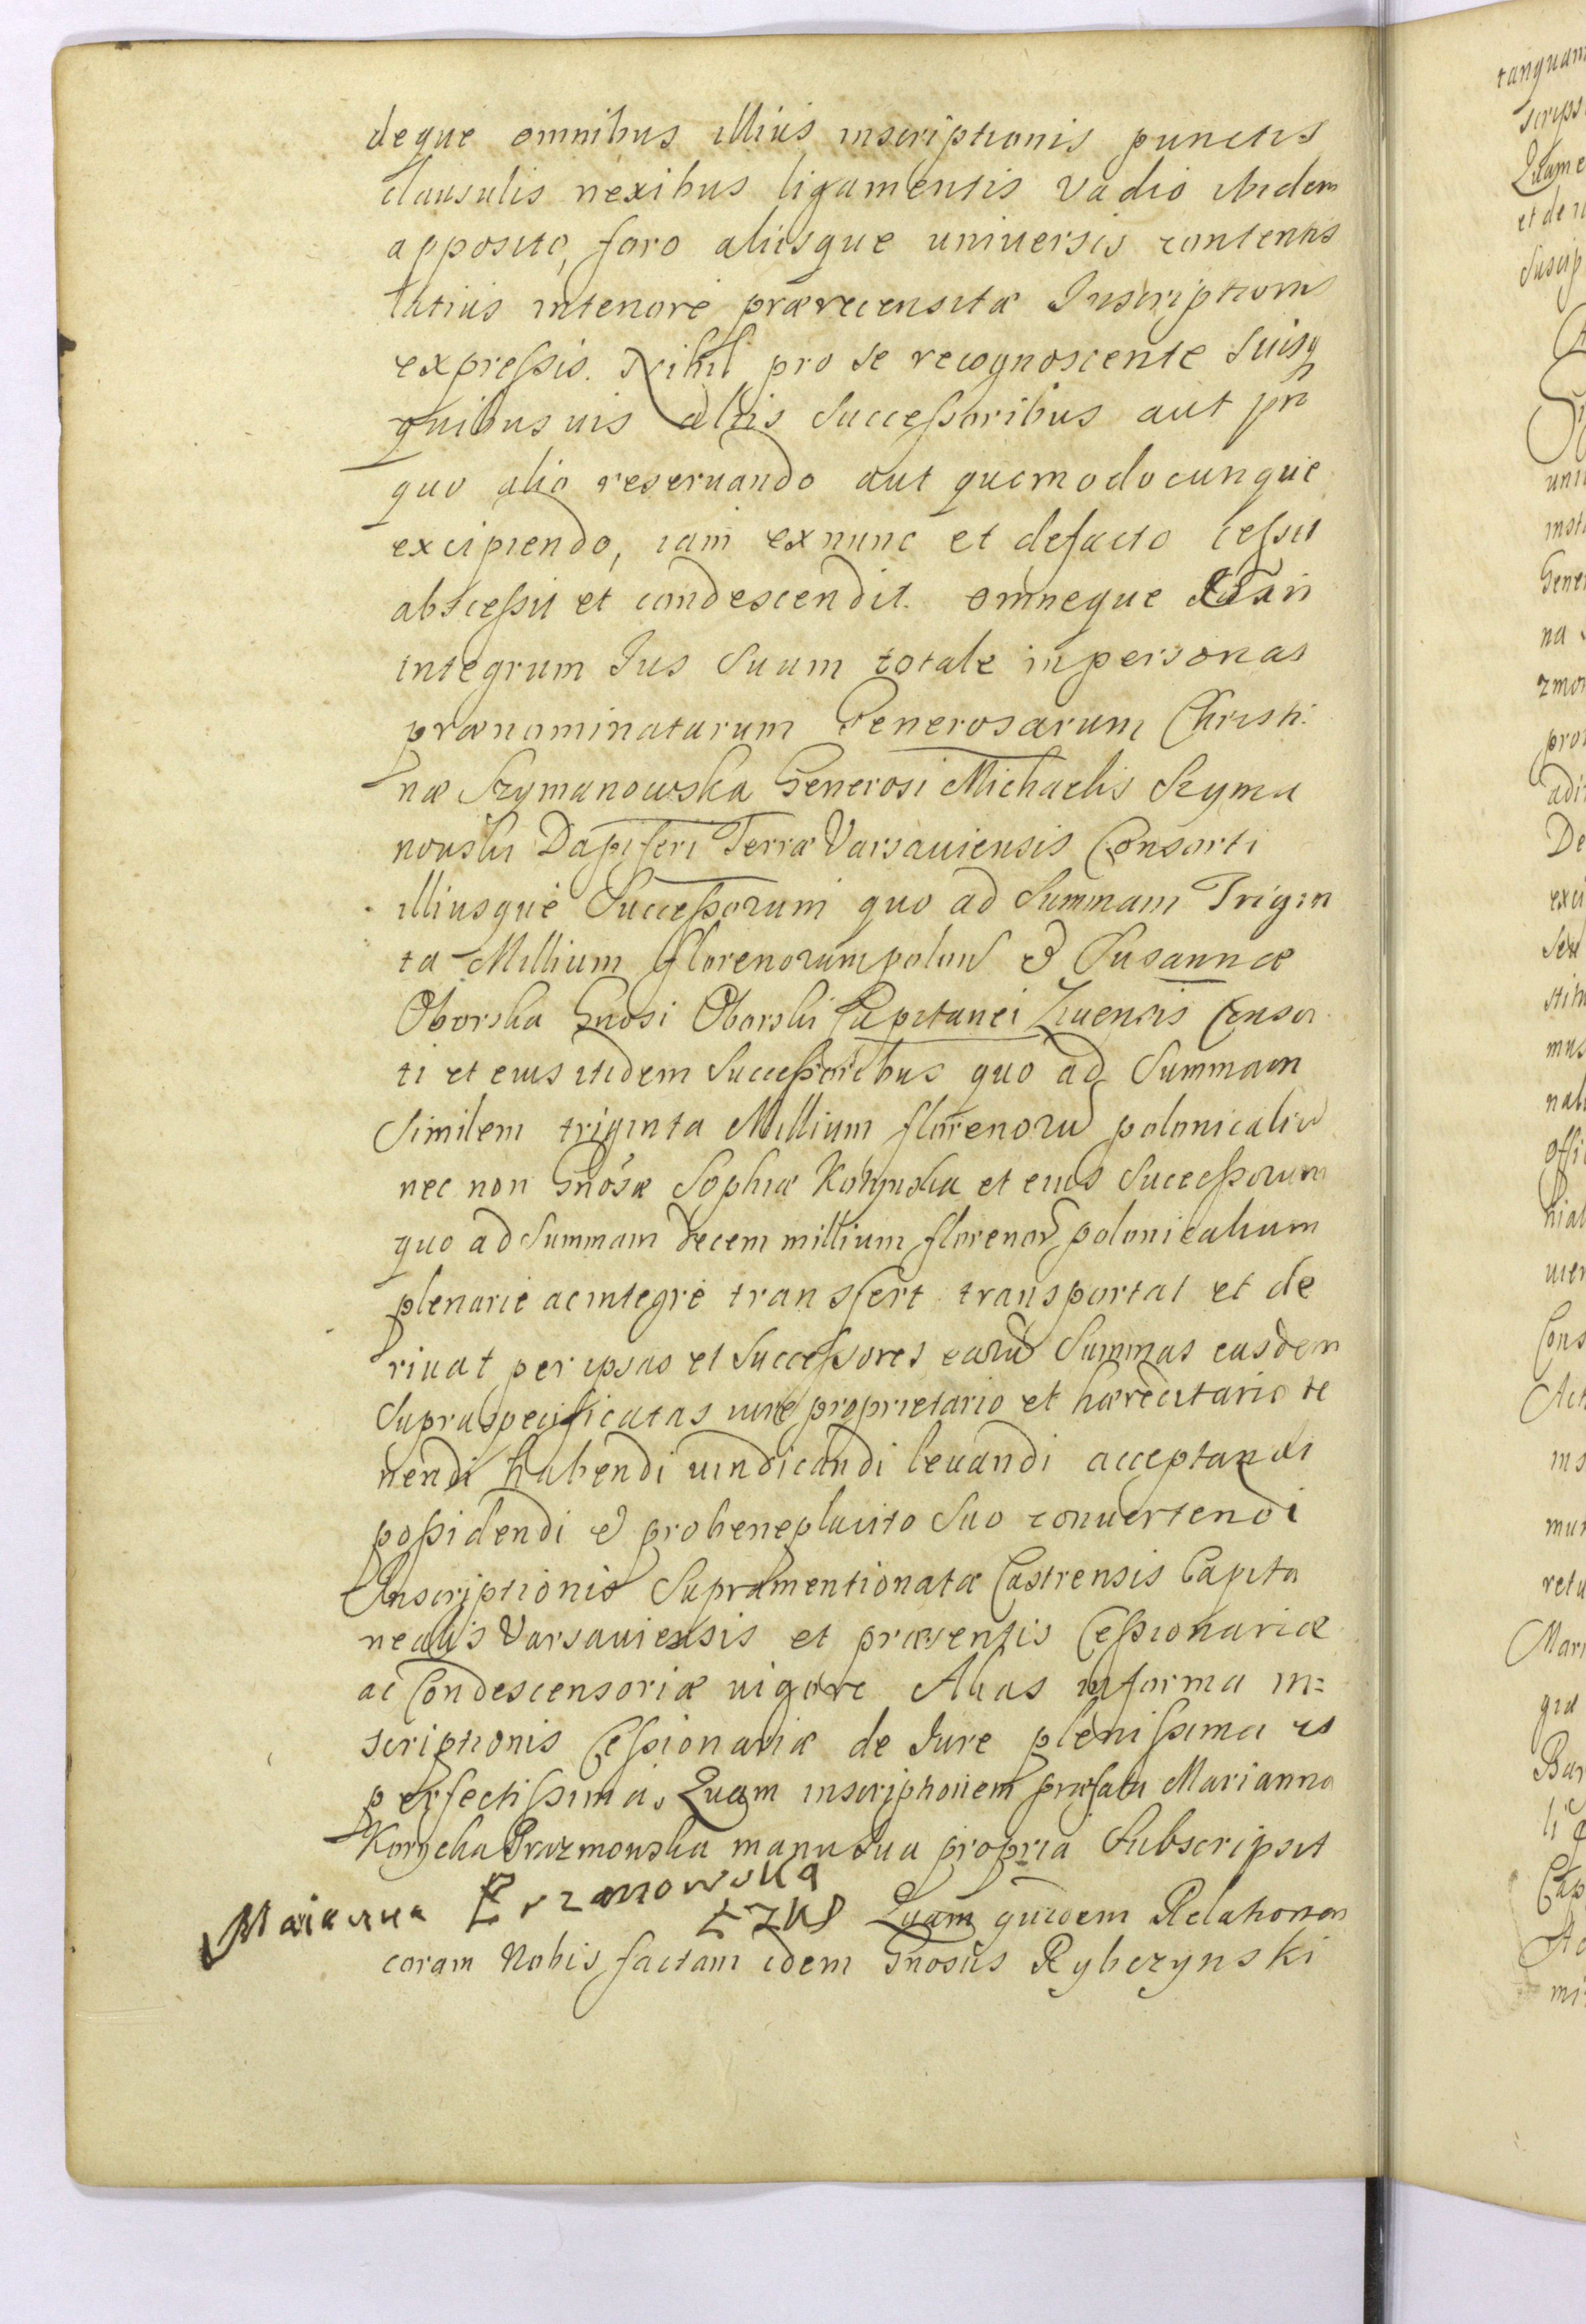 deque omnibus illius inscriptionis punctis
clausulis nexibus ligamentis vadio ibidem
apposito, foro aliisque universis contentis
latius intenore præcecensitæ Inscriptionis
expressis. Nihil pro se recognoscente suisq
quibusuis aliis Successoribus aut pro
quo alio reseruando aut quomodocunque
excipiendo, iam exnunc et defacto cessit
abscessit et condescendit. omneque
integrum Jus Suum totale inpersonas
prænominatarum Generosarum Christi
næ Szymanowska Generosi Michaelis Szyma
nowski Dapiferi Terræ Varsauiensis Consorti
illiusque Successorum quo ad Summam Trigin
ta Millium florenorum polon & Susannæ
Oborska Gnosi Oborski Capitanei Liuensis Consor
ti et eius itidem Successoribus quo ad Summam
Similem triginta Millium florenoru polonicaliu
nec non Gnosæ Sophiæ Korycka et eius Successorum
quo ad Summam decem millium florenor polonicalium
plenarie acintegre transfert transportat et de
riuat per ipsas et Successores earu Summas easdem
Supraspecificatas iure proprietario et hæreditario te
nendi habendi uindicandi leuandi acceptandi
possidendi & probeneplacito Suo conuertendi
Inscriptionis Supramentionatæ Castrensis Capita
nealis Varsauiensis et præsentis Cessionariæ
ac Condescensoriæ uigore Alias informa in=
scriptionis Cessionariæ de Jure plenissima et
perfectissima. Quam inscriptionem præfata Marianna
Korycka Prazmowska manu sua propria Subscripsit
Marianna
Quam quidem Relationem
coram Nobis factam idem Gnosus Rybczynski